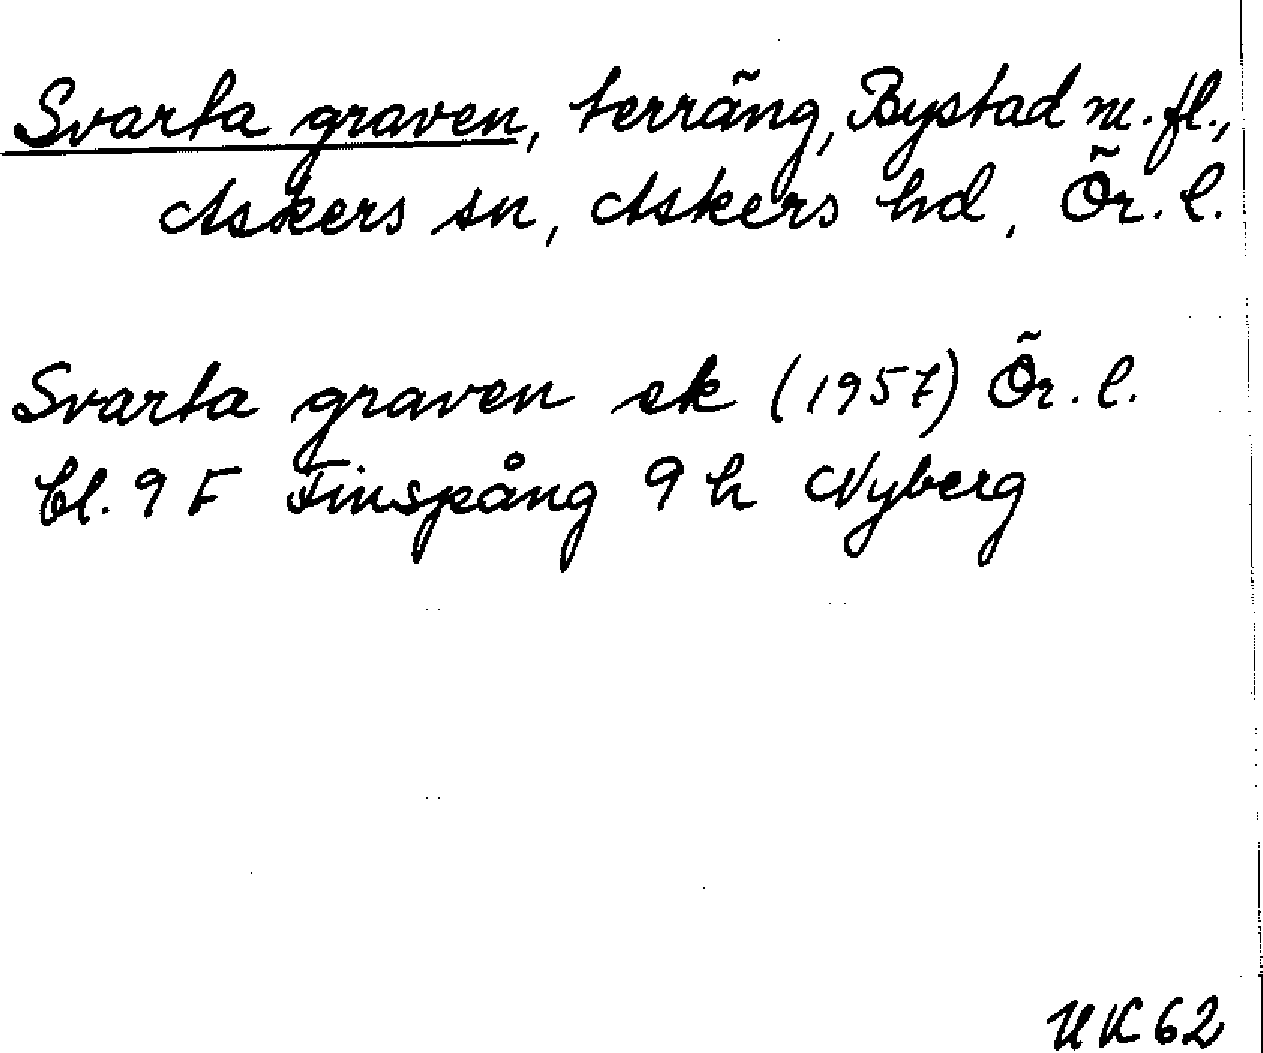 Svarta graven, terräng, Bystad m. fl.,
Askers sn, Askers hd, Ör. l.
Svarta graven ek (1957) Ör. l.
bl. 9 F Finspång 9 h Nyberg
UK 62